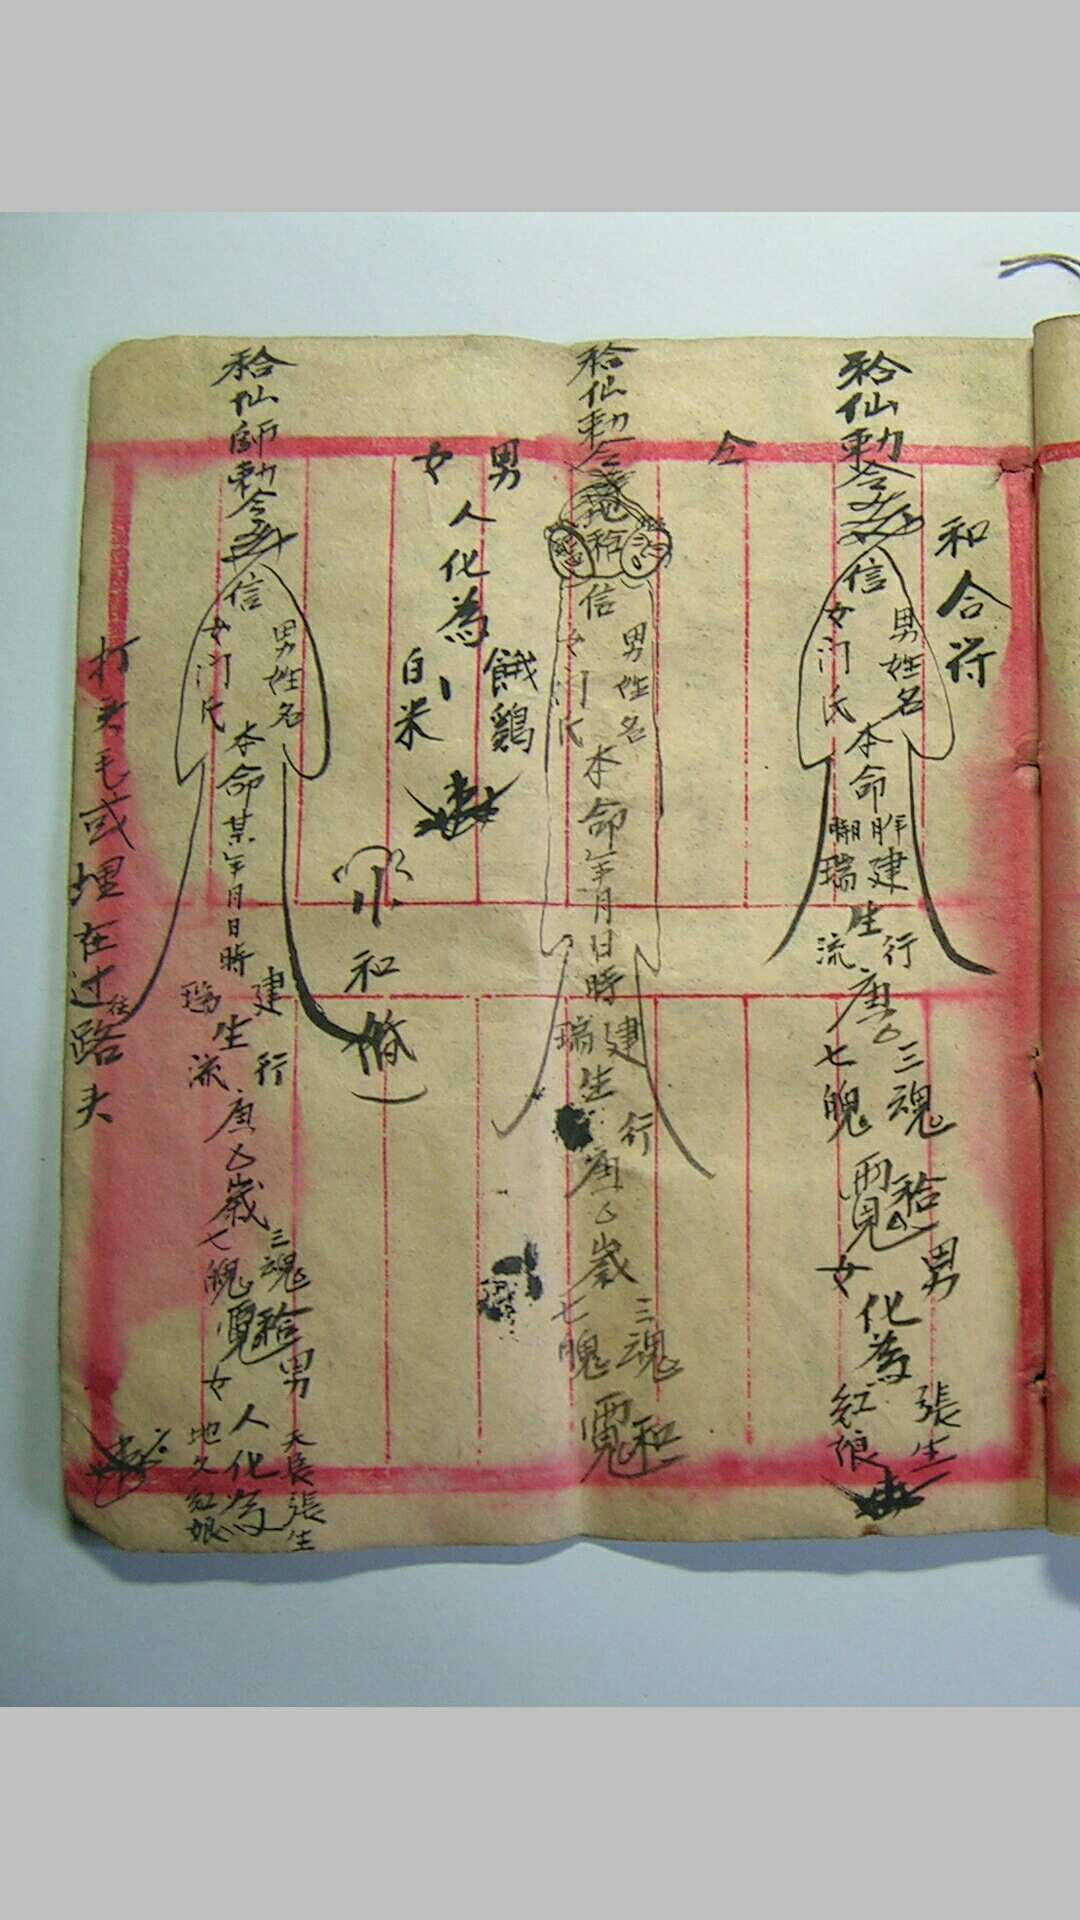 和合符
和合仙勅令
信
男姓名
女门氏
本命
建生行
瑞生流
庚
三魂
七魄
男
女
化為
張生
紅娘
仝
和合仙勅令
信
男姓名
女门氏
本命年月日時
建生行
瑞生
庚 歲
三魂
七魄
男
女
人化為
餓鷄
白米
和
和合仙師勅令
信
男姓名
女门氏
本命某年月日時
建生行
瑞生流
庚 歲
三魂
七魄
男
女
人化為
天長張生
地久紅娘
或埋在过路